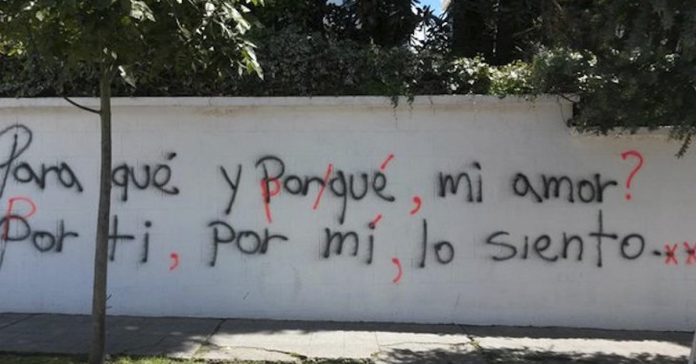 Para qué y por/qué, mi amor?
Por ti, por mí, lo siento.**